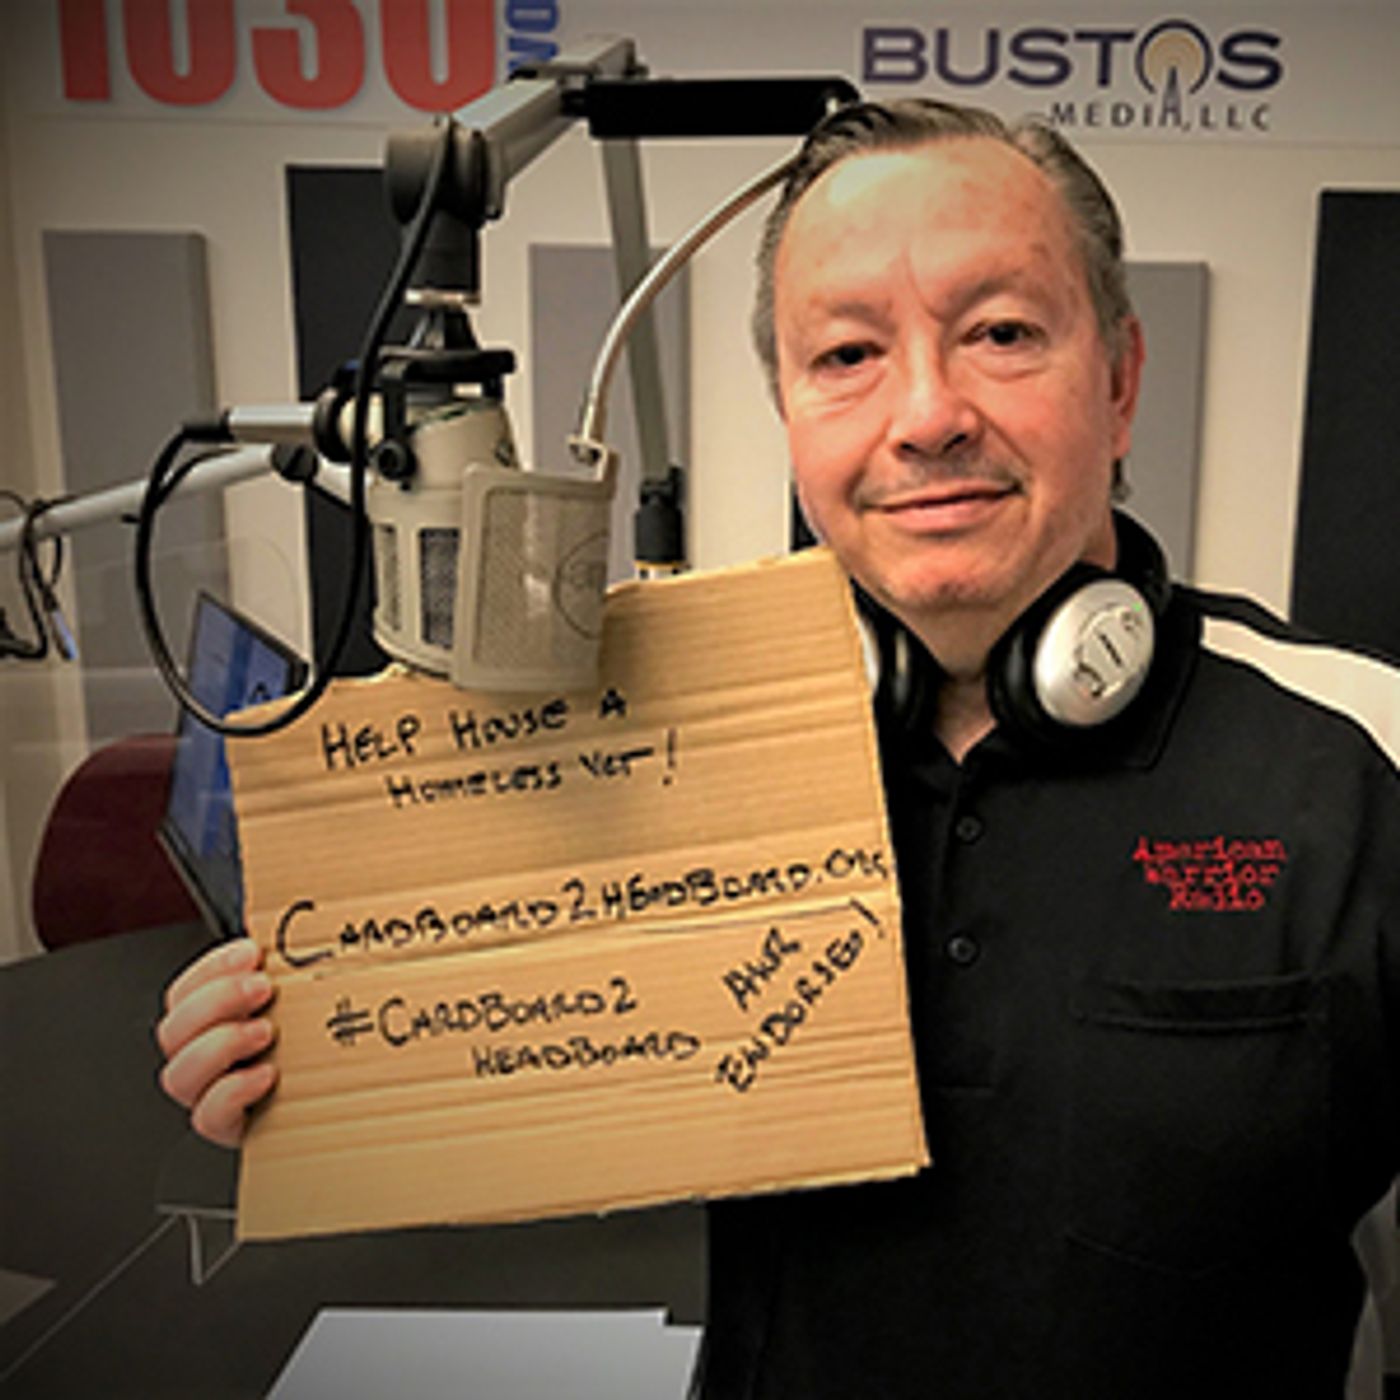 1030
BUSTOS
MEDIA, LLC
HELP HOUSE A
HOMELESS VET!
CARDBOARD2HEADBOARD.ORG
#CARDBOARD2
HEADBOARD
AWR
ENDORSED!
American
Warrior
Radio